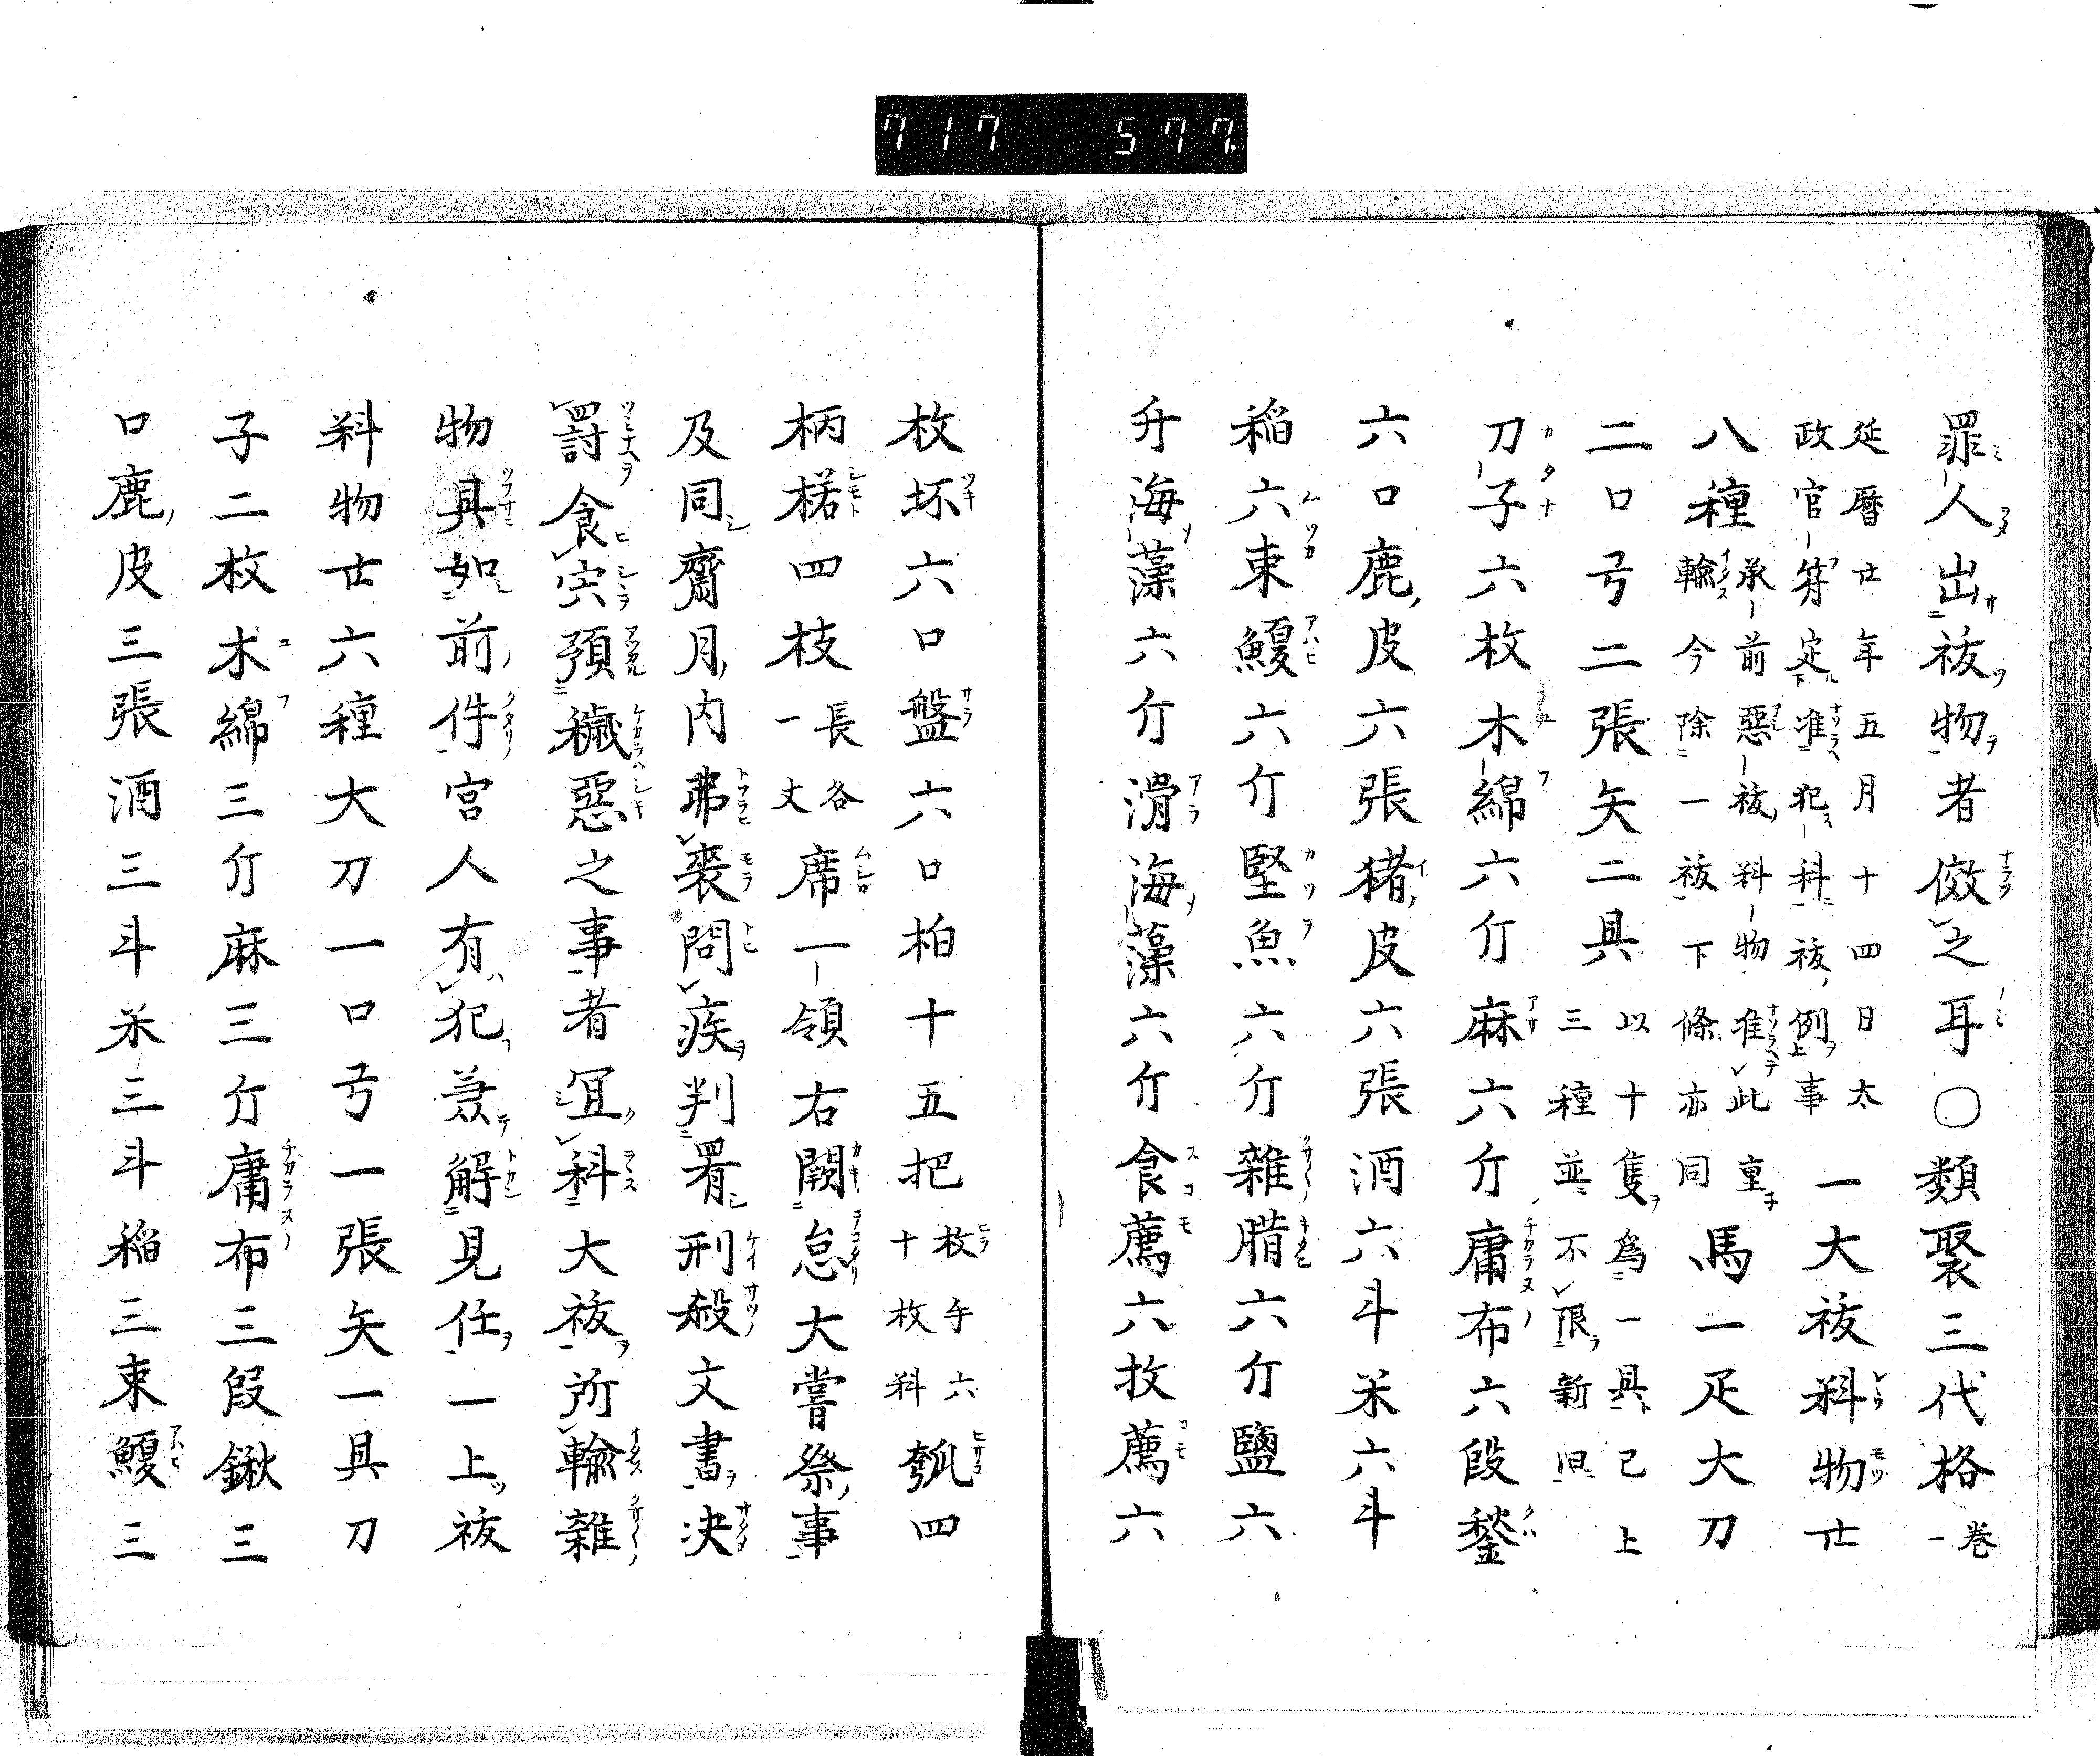 717 577
罪人出祓物者傚之耳〇類聚三代格巻一
延暦廿年五月十四日太
政官符定准犯科祓例事一大祓料物廿
八種承前惡祓料物准此重
輸今除一祓下條亦同馬一疋大刀
二口弓二張矢二具以十隻爲一具已上
三種並不限新旧
刀子六枚木綿六斤麻六斤庸布六段鍫
六口鹿皮六張猪皮六張酒六斗米六斗
稲六束鰒六斤堅魚六斤雜腊六斤鹽六
升海藻六斤滑海藻六斤食薦六枚薦六
枚坏六口盤六口柏十五把枚手六
十枚料瓠四
柄楉四枝長各
一丈席一領右闕怠大嘗祭事
及同齋月内弔喪問疾判署刑殺文書決
罸食宍預穢惡之事者冝科大祓所輸雜
物具如前件官人有犯兼解見任一上祓
料物廿六種大刀一口弓一張矢一具刀
子二枚木綿三斤麻三斤庸布三段鍬三
口鹿皮三張酒三斗米三斗稲三束鰒三